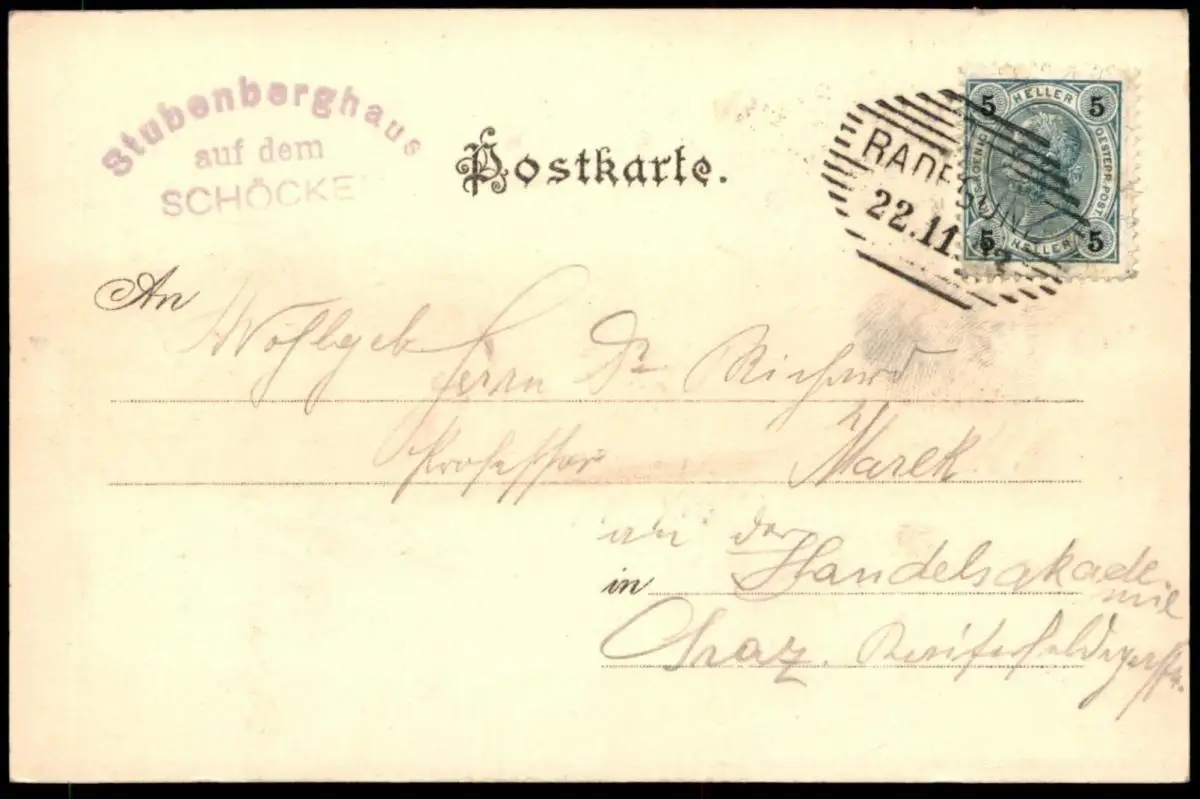 Stubenberghaus
auf dem
SCHÖCKE
Postkarte.
5 HELLER 5
OESTERR. POST.
5 HELLER 5
22.11
An Wohlgeb
Herrn Dr Richard
Professor Marek
an der
in Handelsakade-
mie
Graz.